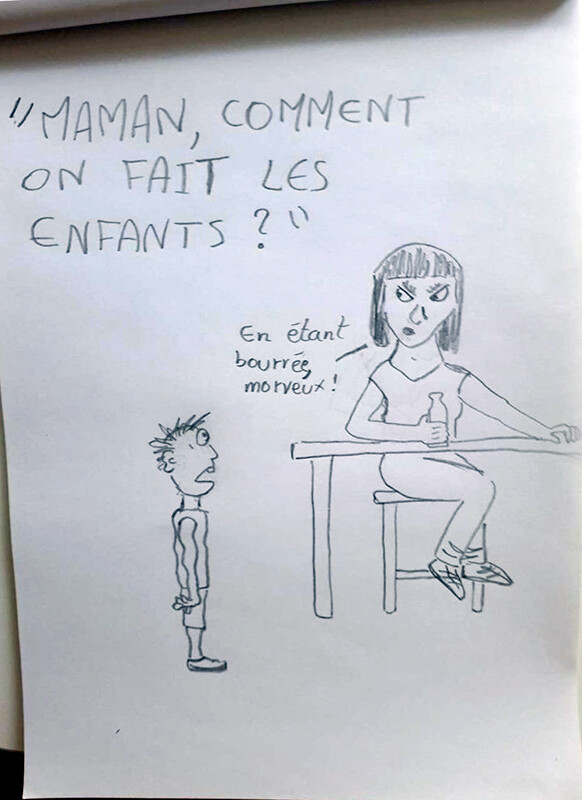 "MAMAN, COMMENT
ON FAIT LES
ENFANTS ?"
En étant
bourrée,
morveux !